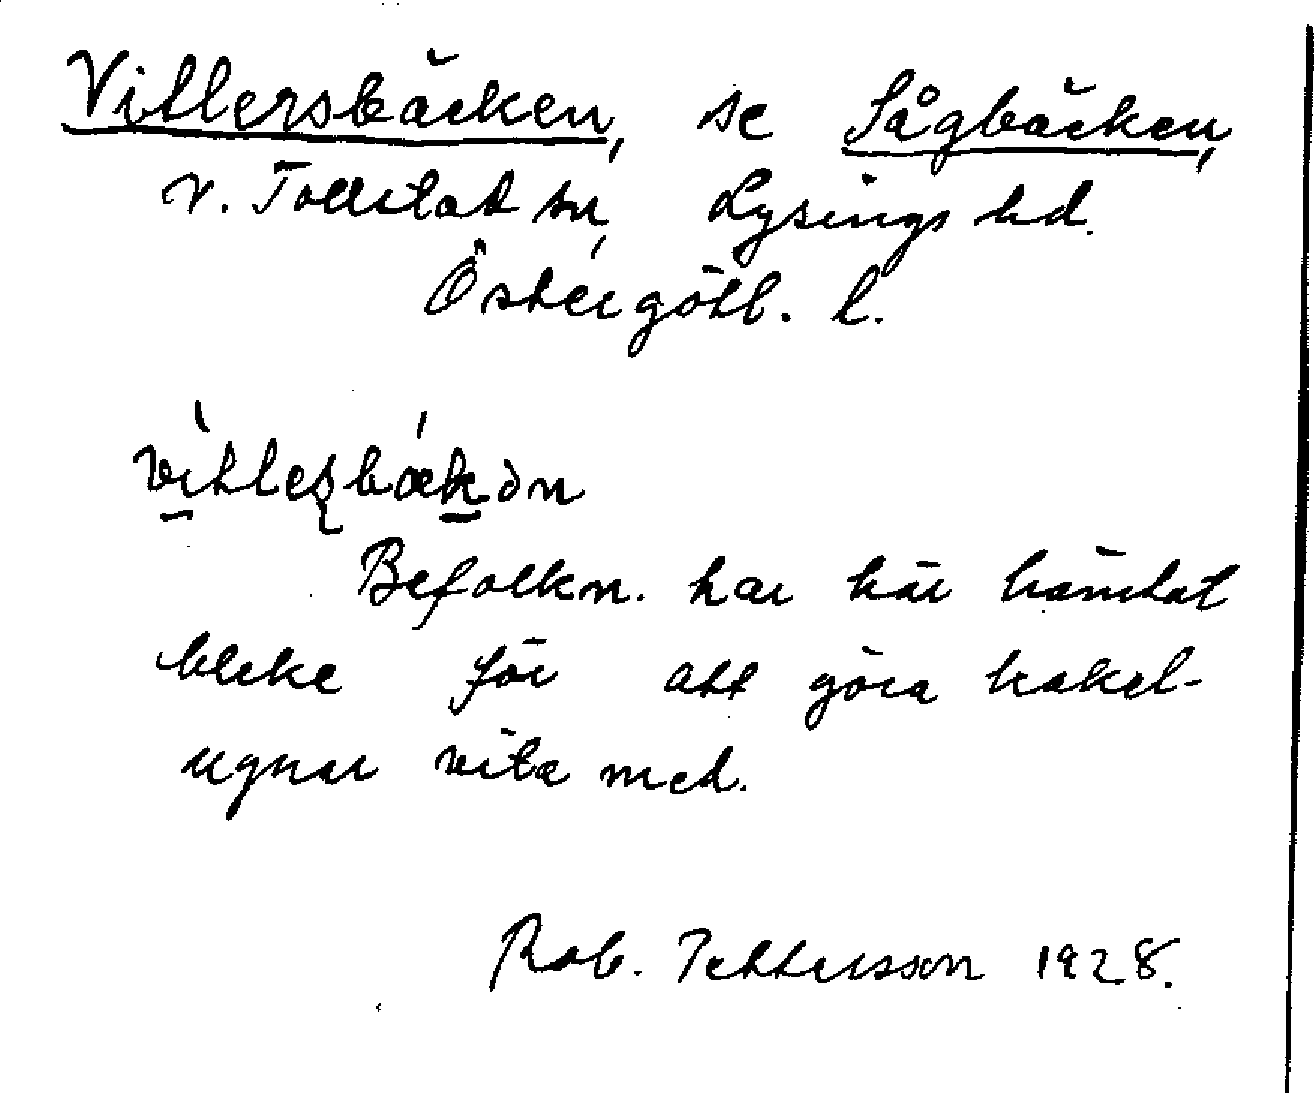 Vitlersbäcken, se Sågbäcken,
V. Tollstad sn, Lysings hd.
Östergötl. l.
Befolkn. har här hämtat
bleke för att göra kakel-
ugnar vita med.
Rob. Pettersson 1928.